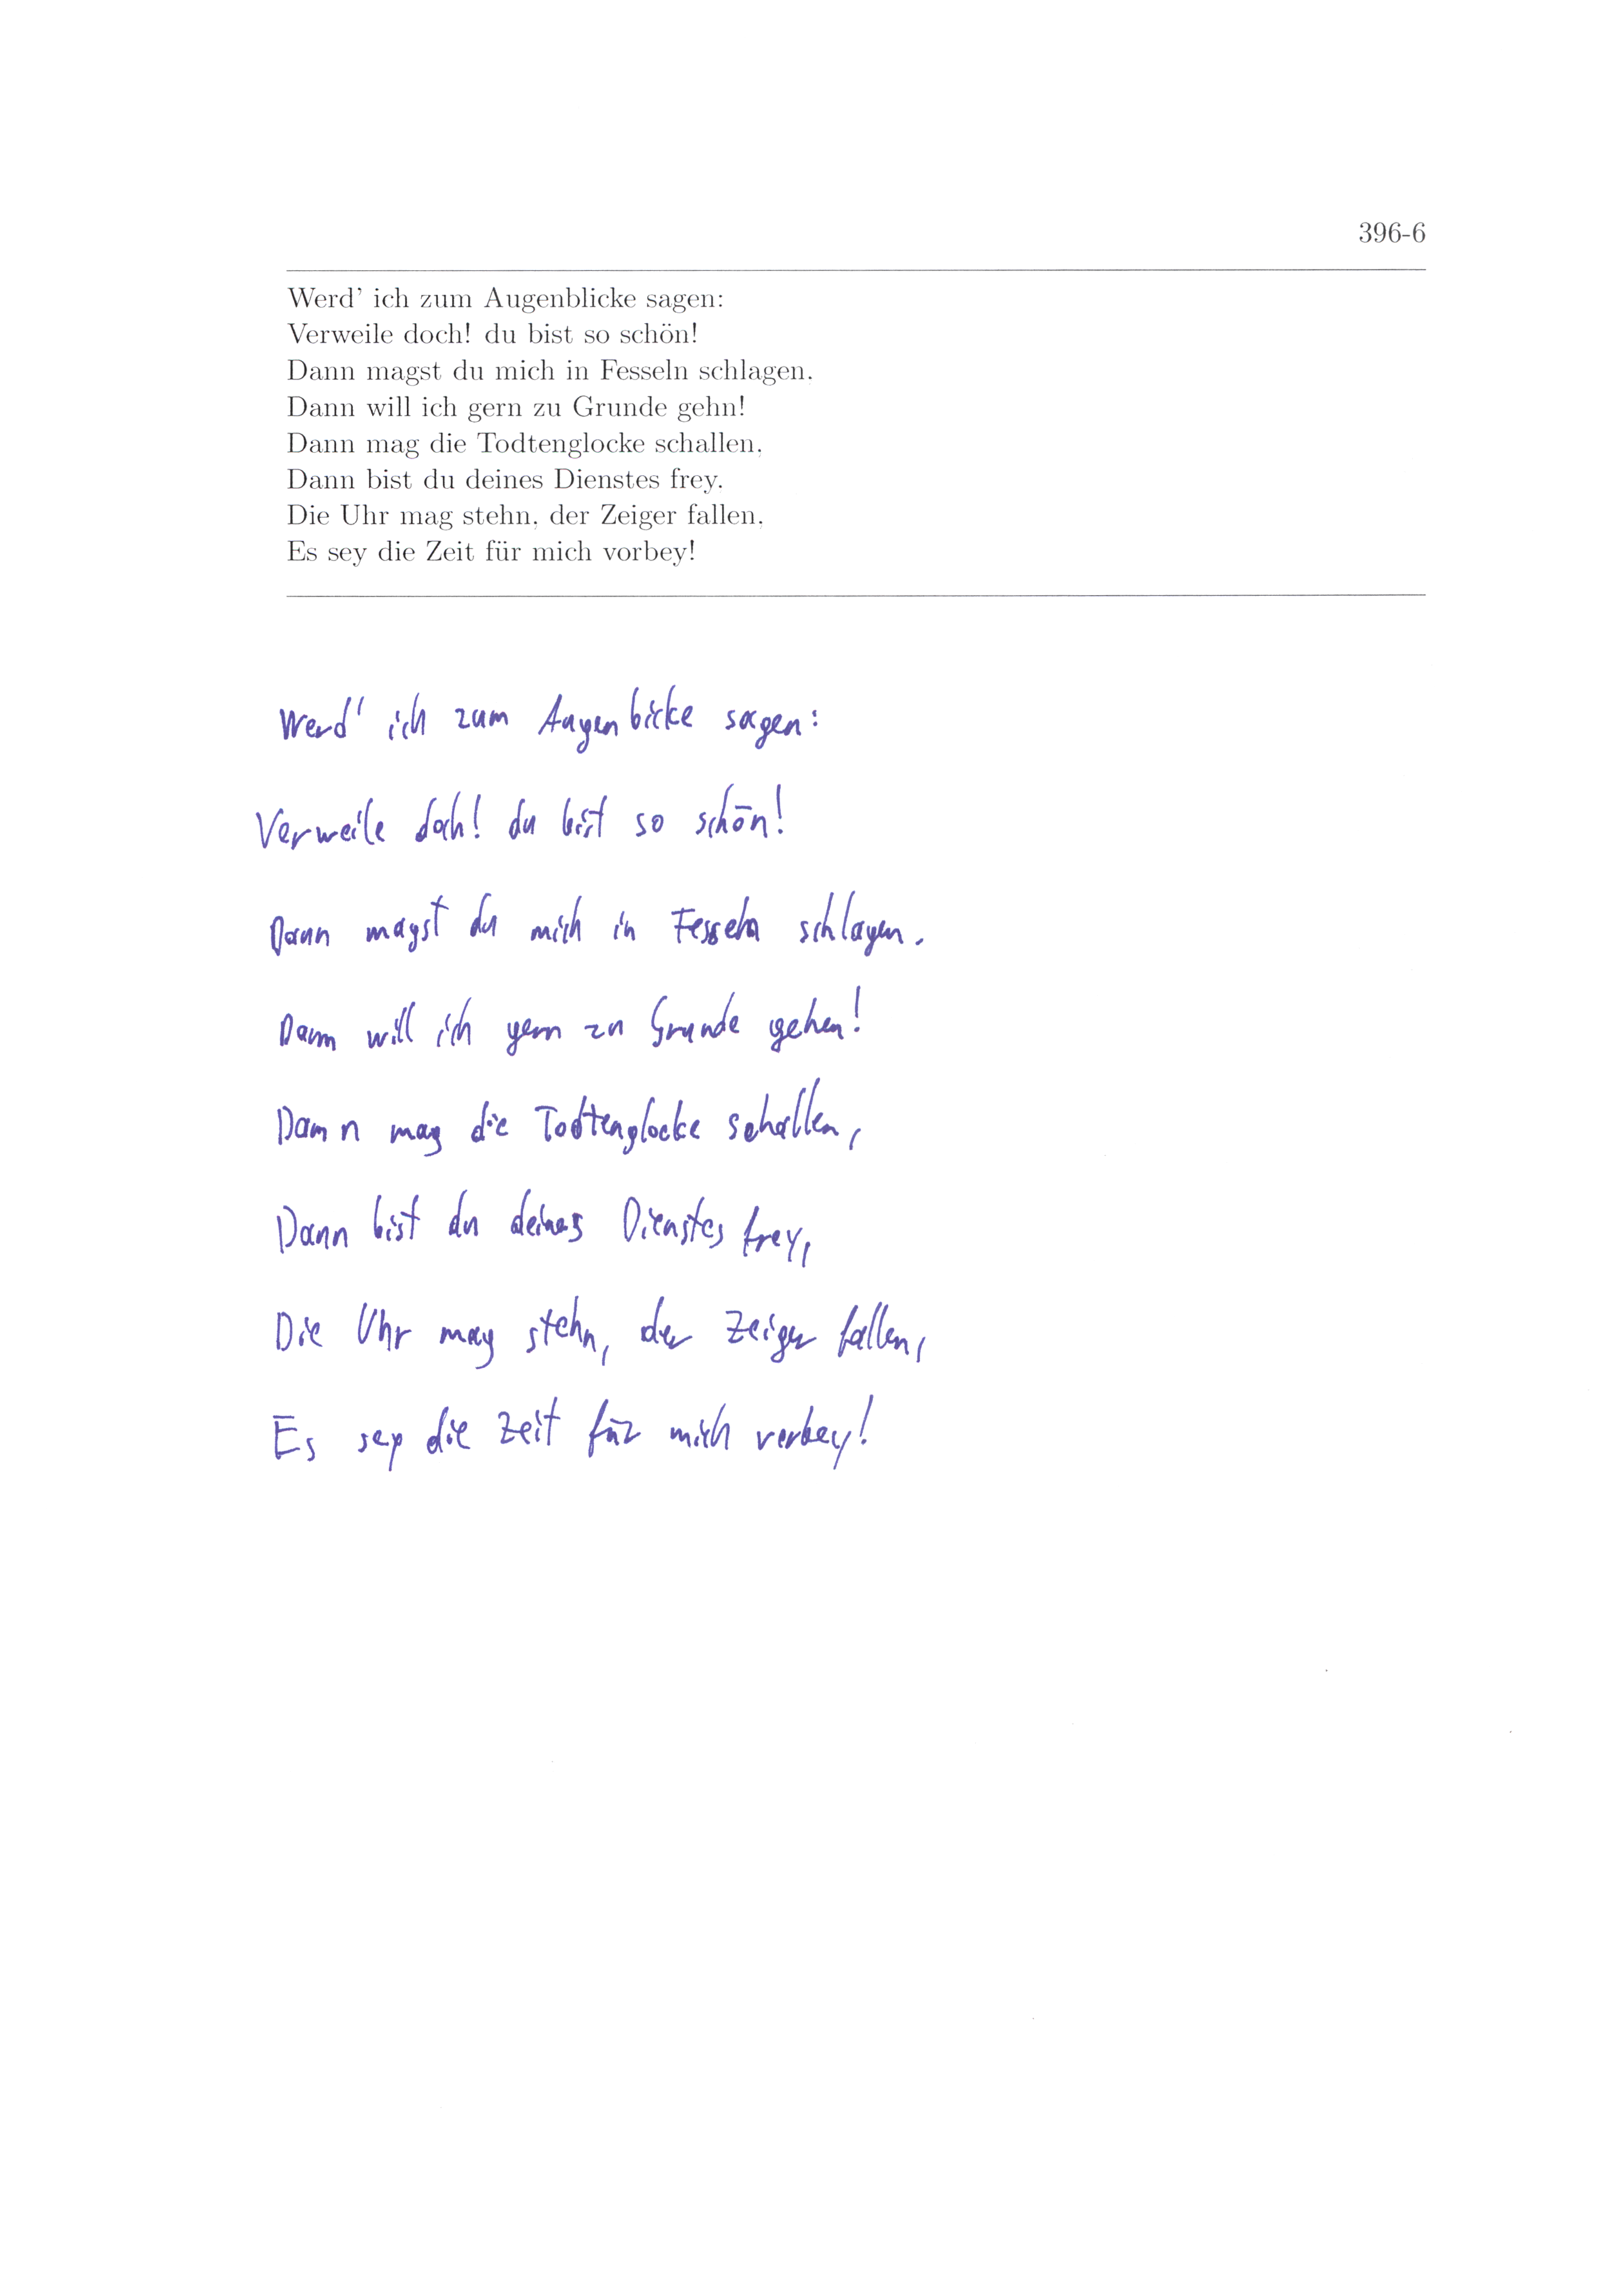 396-6
Werd' ich zum Augenblicke sagen:
Verweile doch! du bist so schön!
Dann magst du mich in Fesseln schlagen.
Dann will ich gern zu Grunde gehn!
Dann mag die Todtenglocke schallen,
Dann bist du deines Dienstes frey.
Die Uhr mag stehn, der Zeiger fallen,
Es sey die Zeit für mich vorbey!
Werd' ich zum Augenbicke sagen:
Verweile doch! du bist so schön!
Dann magst du mich in Fesseln schlagen.
Dann will ich gern zu Grunde gehen!
Dann mag die Todtenglocke schallen,
Dann bist du deines Dienstes frey,
Die Uhr mag stehn, der Zeiger fallen,
Es sey die Zeit für mich vorbey!